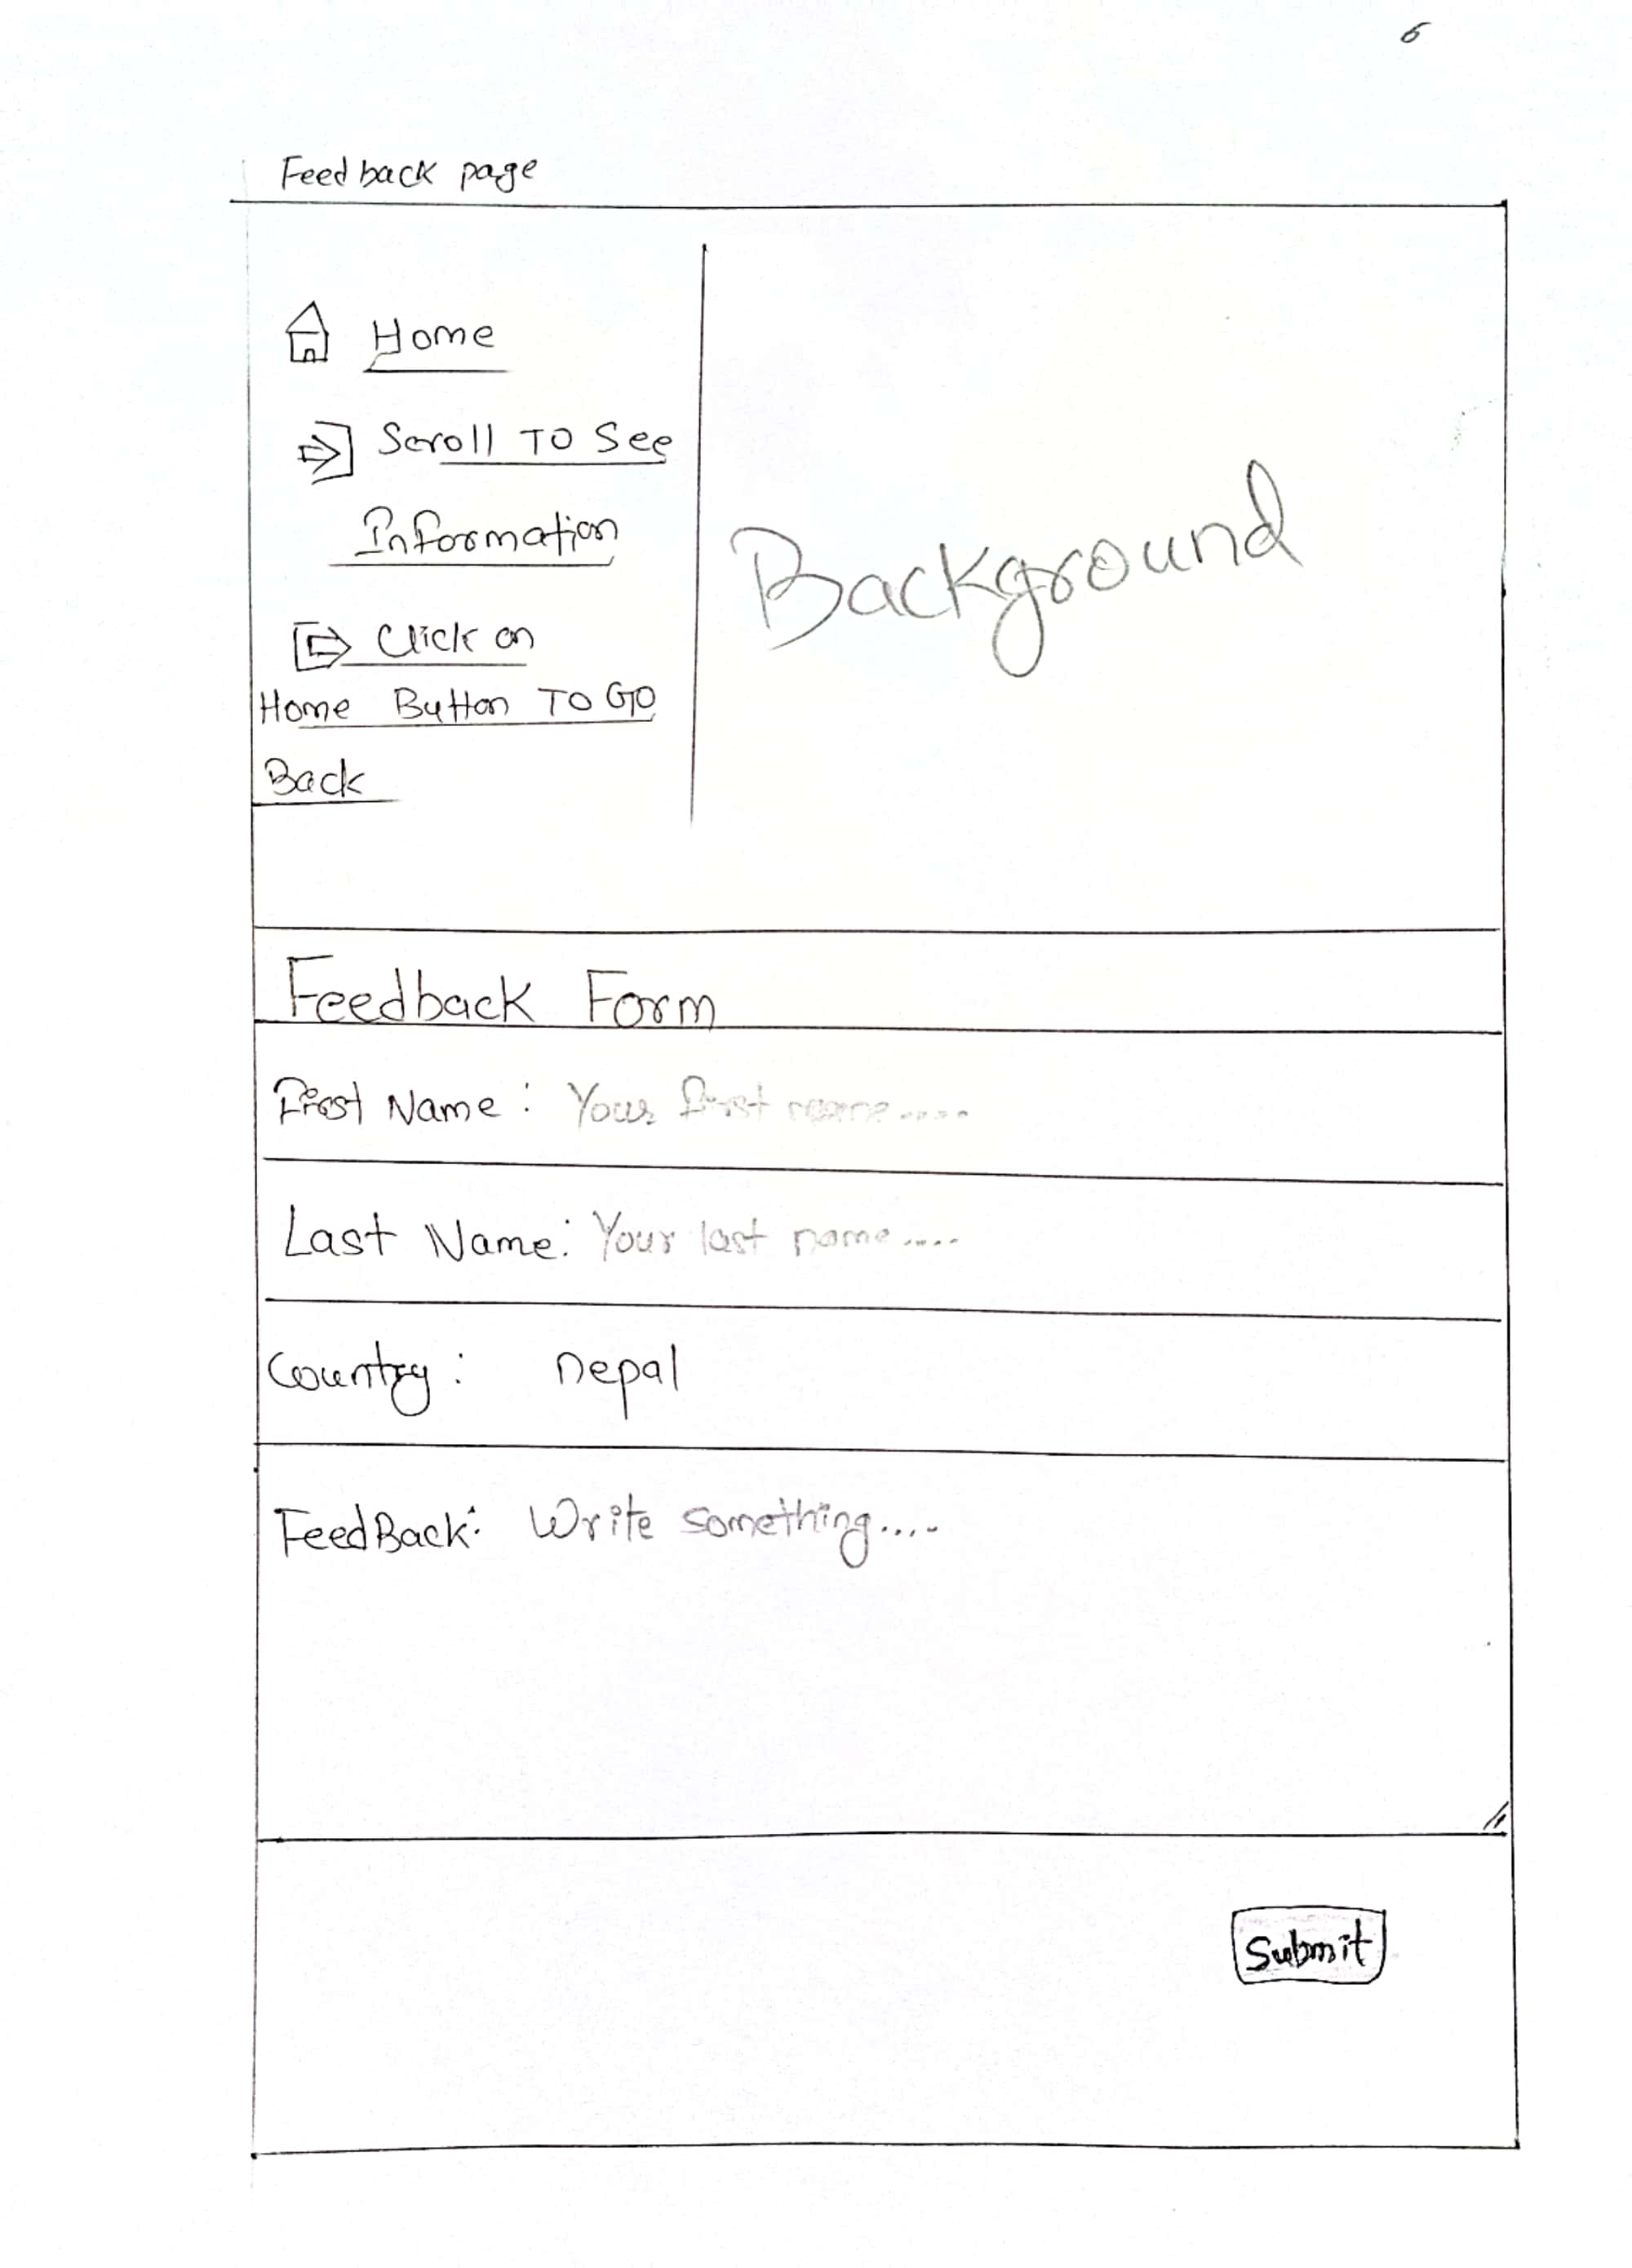 6
Feedback page
Home
Scroll TO See
Information
Click on
Home Button TO GO
Back
Background
Feedback Form
First Name : Your first name.....
Last Name: Your last name....
Country : nepal
FeedBack: Write something....
Submit